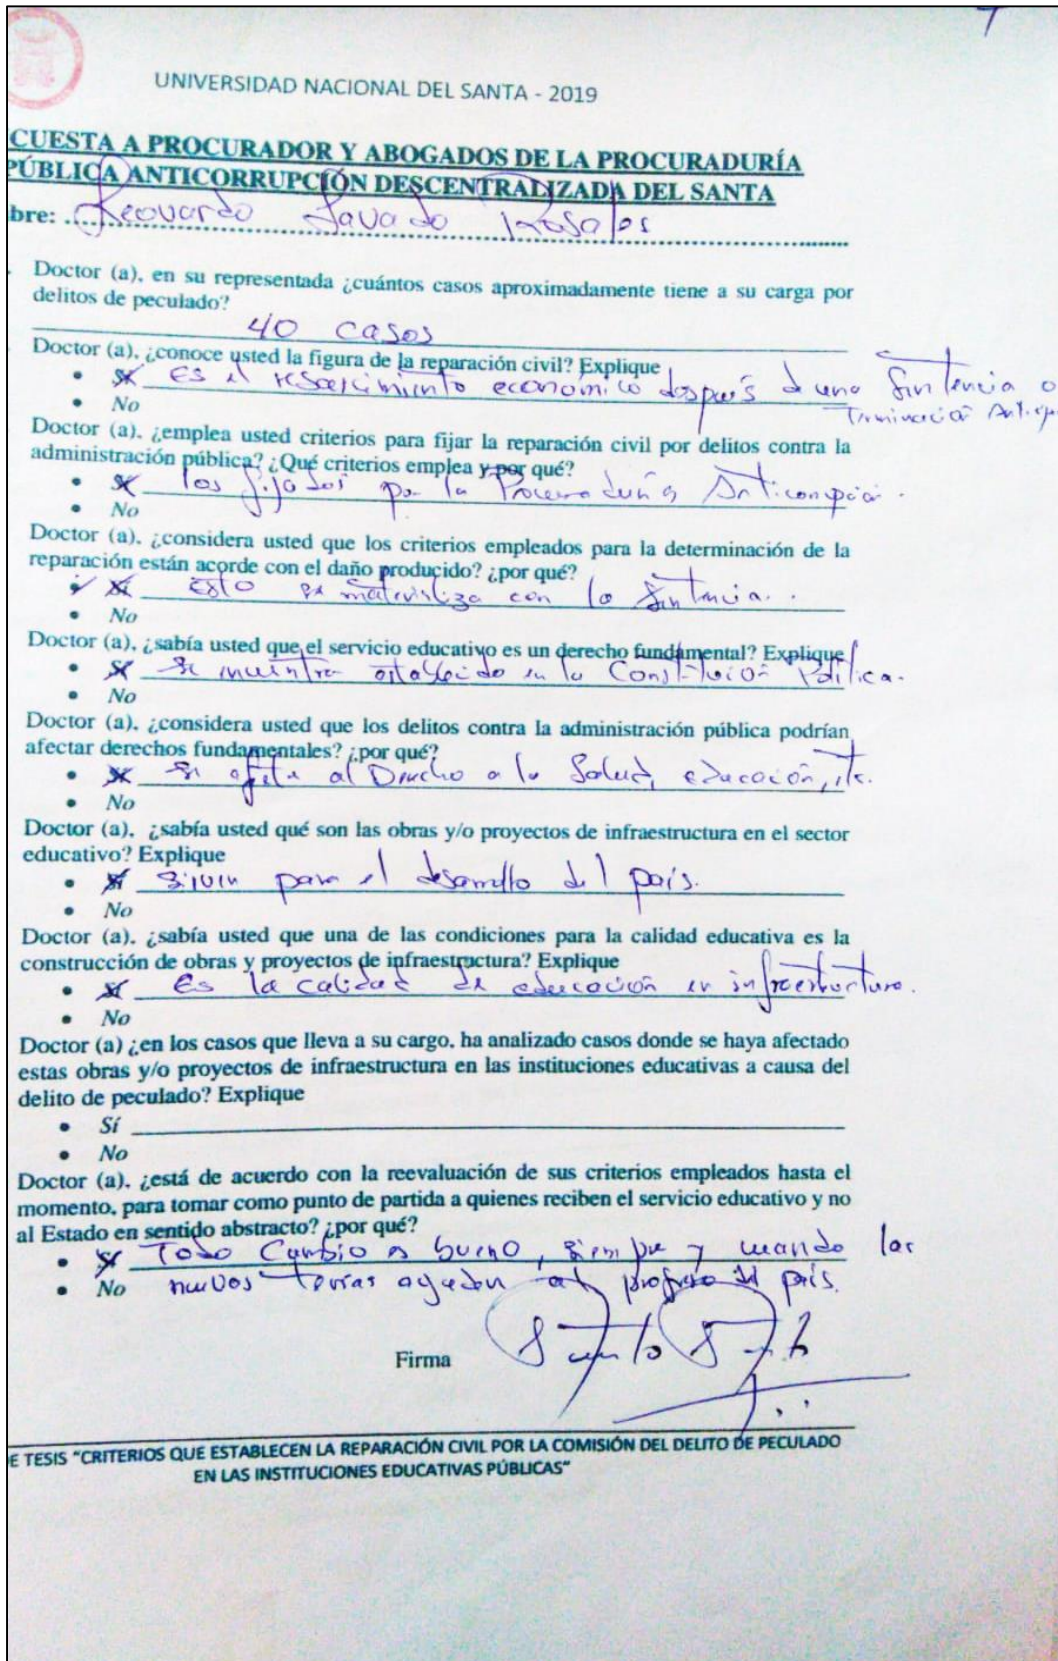 UNIVERSIDAD NACIONAL DEL SANTA - 2019
CUESTA A PROCURADOR Y ABOGADOS DE LA PROCURADURÍA
PÚBLICA ANTICORRUPCIÓN DESCENTRALIZADA DEL SANTA
bre: Leovardo Lavado Rosales
Doctor (a), en su representada ¿cuántos casos aproximadamente tiene a su carga por
delitos de peculado?
40 casos
Doctor (a), ¿conoce usted la figura de la reparación civil? Explique
• Sí es el resarcimiento económico después de una sentencia o
• No Terminación Antici
Doctor (a), ¿emplea usted criterios para fijar la reparación civil por delitos contra la
administración pública? ¿Qué criterios emplea y por qué?
• Sí los fijados por la Procuraduría Anticorrupción.
• No
Doctor (a), ¿considera usted que los criterios empleados para la determinación de la
reparación están acorde con el daño producido? ¿por qué?
• Sí Esto se materializa con la sentencia.
• No
Doctor (a), ¿sabía usted que el servicio educativo es un derecho fundamental? Explique
• Sí se encuentra establecido en la Constitución Política.
• No
Doctor (a), ¿considera usted que los delitos contra la administración pública podrían
afectar derechos fundamentales? ¿por qué?
• Sí se afecta al Derecho a la Salud, educación, etc.
• No
Doctor (a), ¿sabía usted qué son las obras y/o proyectos de infraestructura en el sector
educativo? Explique
• Sí sirven para el desarrollo del país.
• No
Doctor (a), ¿sabía usted que una de las condiciones para la calidad educativa es la
construcción de obras y proyectos de infraestructura? Explique
• Sí Es la calidad de educación en infraestructura.
• No
Doctor (a) ¿en los casos que lleva a su cargo, ha analizado casos donde se haya afectado
estas obras y/o proyectos de infraestructura en las instituciones educativas a causa del
delito de peculado? Explique
• Sí
• No
Doctor (a), ¿está de acuerdo con la reevaluación de sus criterios empleados hasta el
momento, para tomar como punto de partida a quienes reciben el servicio educativo y no
al Estado en sentido abstracto? ¿por qué?
• Sí Todo Cambio es bueno, siempre y cuando las
• No nuevos teorías ayuden al progreso del país.
Firma
E TESIS "CRITERIOS QUE ESTABLECEN LA REPARACIÓN CIVIL POR LA COMISIÓN DEL DELITO DE PECULADO
EN LAS INSTITUCIONES EDUCATIVAS PÚBLICAS"